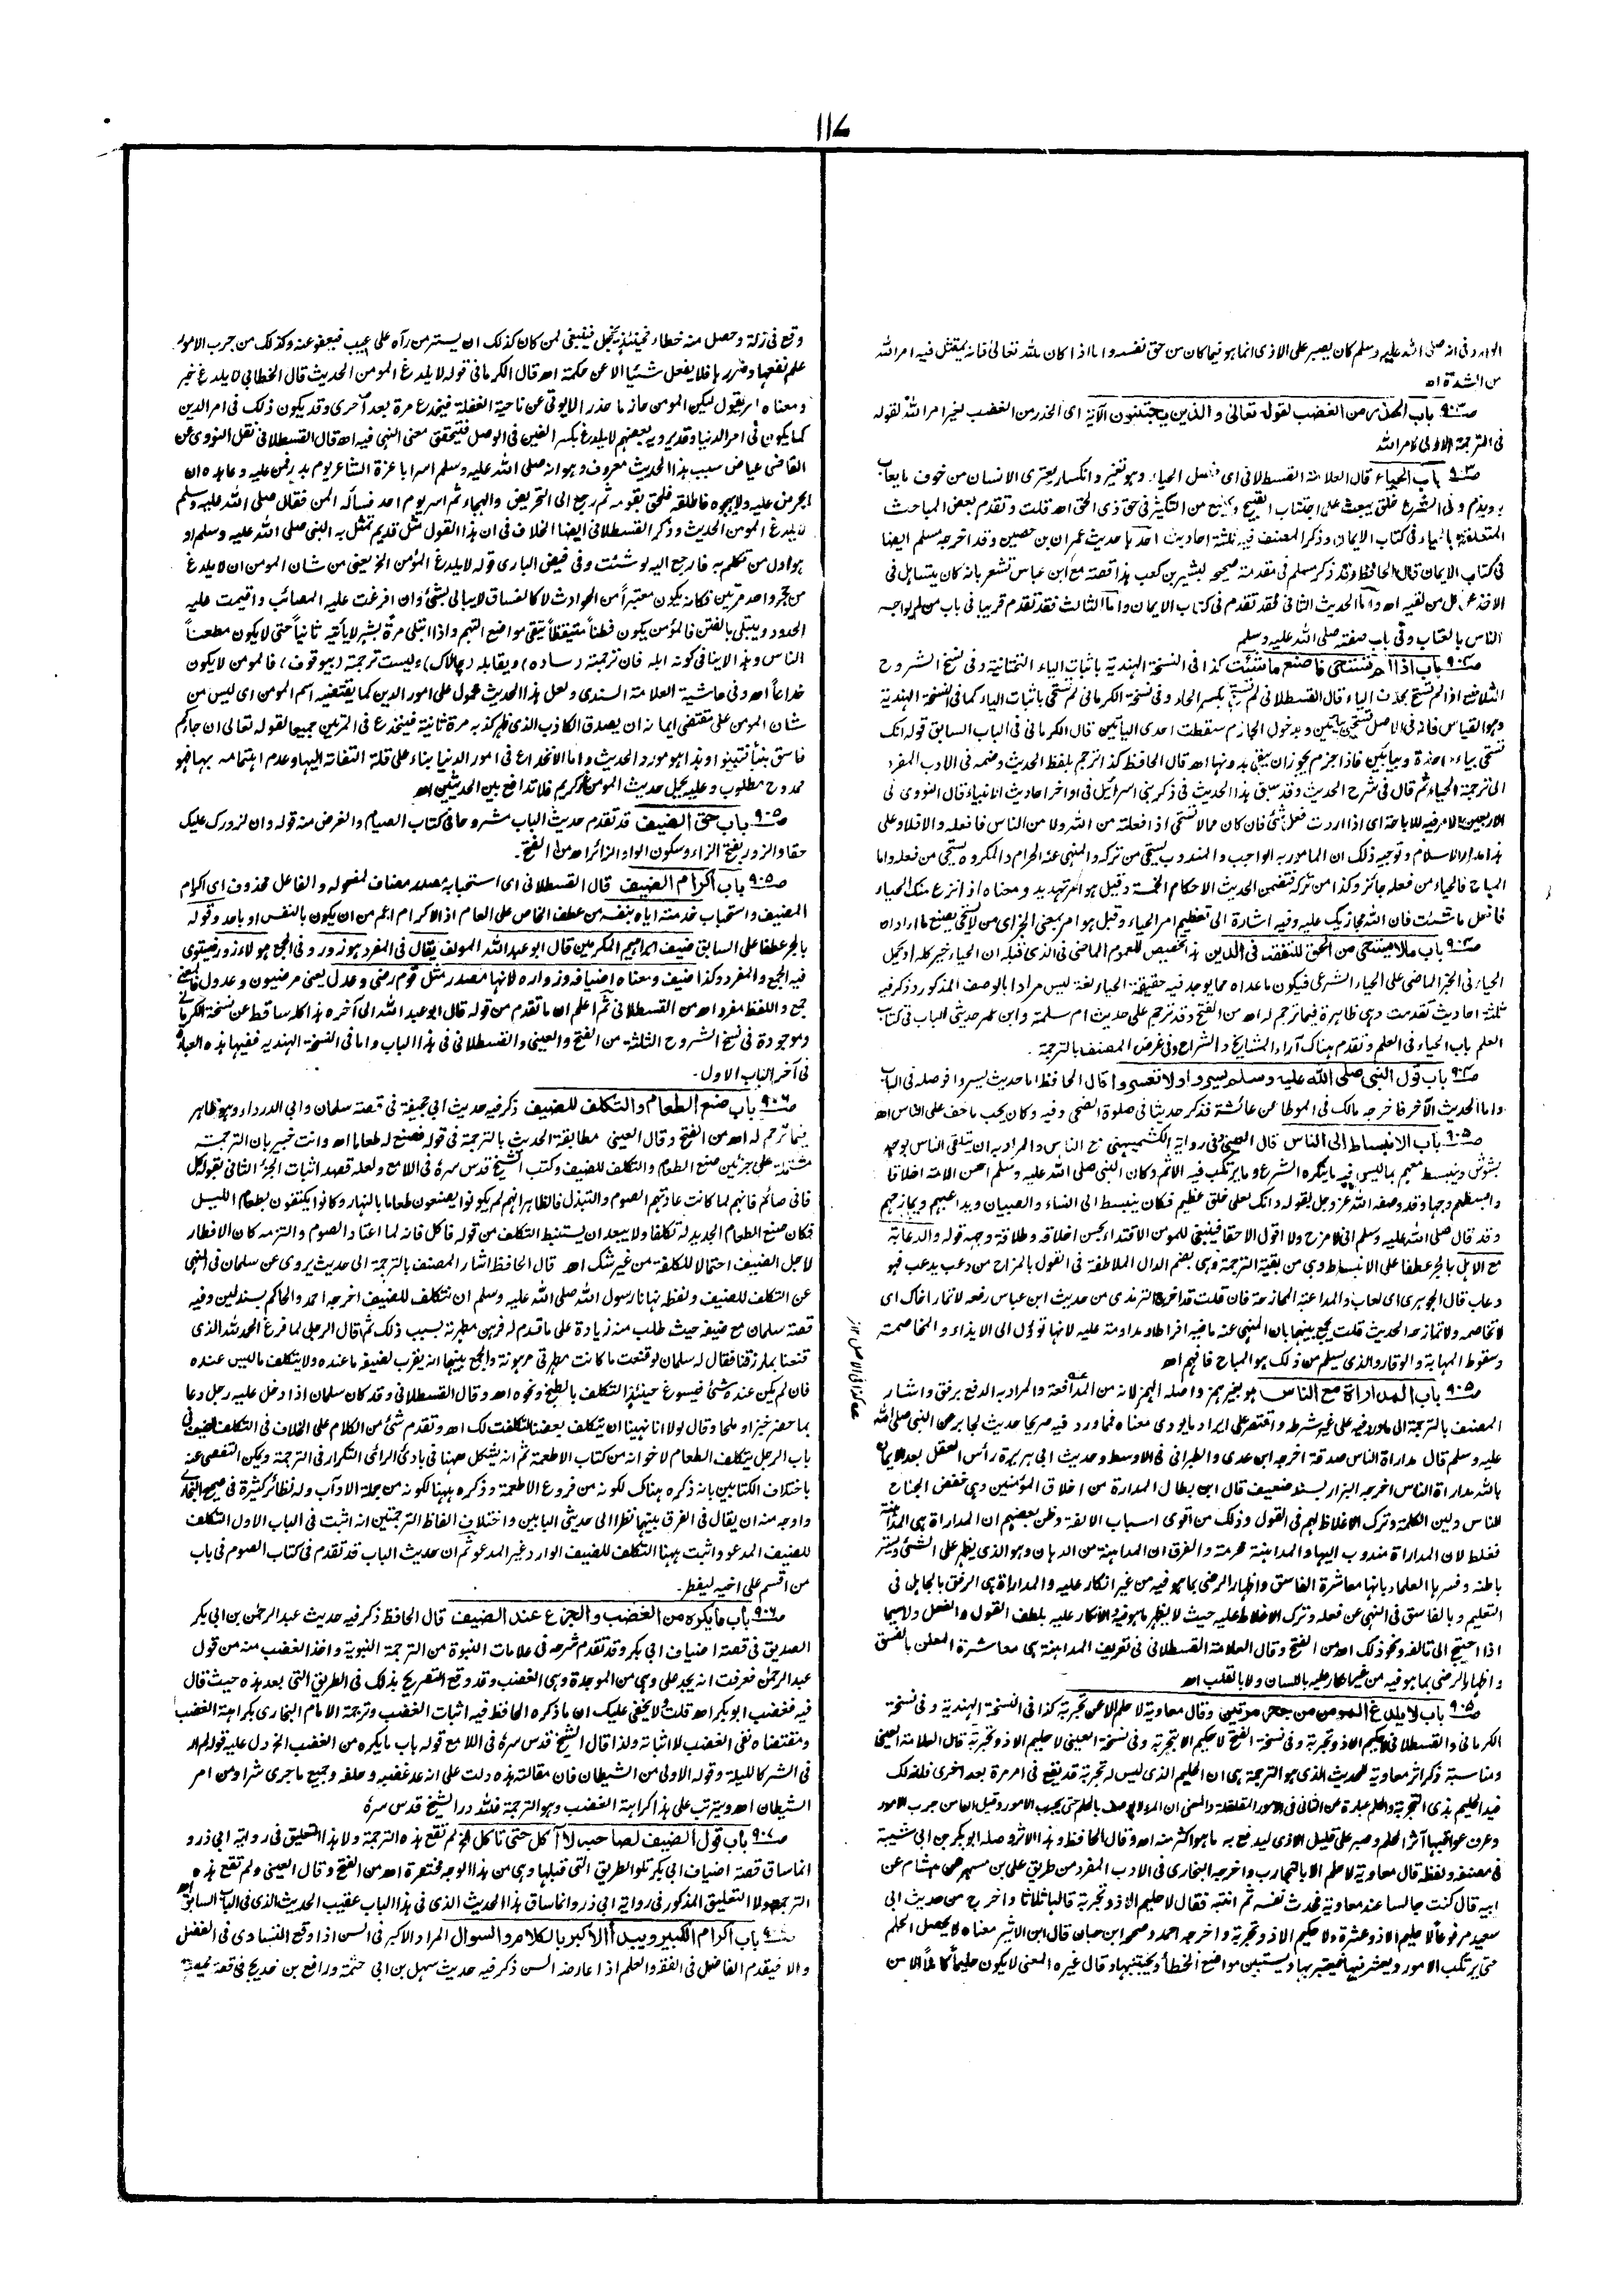 ١١٧
الوارد فى انه صلى الله عليه وسلم كان يصبر على الاذى انما هو فيما كان من حق نفسه واما اذا كان لله تعالى فانه يمتثل فيه امر الله
من الشدة اھ
صـ٩٠٣ باب الحذر من الغضب لقوله تعالى والذين يجتنبون الآية اى الحذر من الغضب لغير امر الله لقوله
فى الترجمة الاولى لامر الله
صـ٩٠٣ باب الحياء قال العلامة القسطلانى اى فضل الحياء وهو تغير وانكسار يعترى الانسان من خوف ما يعاب
به ويذم وفى الشرع خلق يبعث على اجتناب القبيح ويمنع من التكثير فى حق ذى الحق اھ قلت وتقدم بعض المباحث
المتعلقة بالحياء فى كتاب الايمان وذكر المصنف فيه ثلثة احاديث احدها حديث عمران بن حصين وقد اخرجه مسلم ايضا
فى كتاب الايمان قال الحافظ وقد ذكر مسلم فى مقدمة صحيحه لبشير بن كعب هذا قصة مع ابن عباس تشعر بانه كان يتساهل فى
الاخذ عن كل من لقيه اھ واما الحديث الثانى فقد تقدم فى كتاب الايمان واما الثالث فقد تقدم قريبا فى باب من لم يواجه
الناس بالعتاب وفى باب صفته صلى الله عليه وسلم
صـ٩٠٤ باب اذا لم تستحى فاصنع ما شئت كذا فى النسخة الهندية باثبات الياء التحتانية وفى نسخ الشروح
الثلاثة اذا لم تستح بحذف الياء قال القسطلانى لم تستح بكسر الحاء وفى نسخة الكرمانى لم تستحى باثبات الياء كما فى النسخة الهندية
وهو القياس فانه فى الاصل تستحيى بيائين وبدخول الجازم سقطت احدى اليائين قال الكرمانى فى الباب السابق قوله انك
تستحى بياء واحدة وبيائين فاذا جزم يجوز ان يبقى بدونها اھ قال الحافظ كذا ترجم بلفظ الحديث وضمه فى الادب المفرد
الى ترجمة الحياء ثم قال فى شرح الحديث وقد سبق هذا الحديث فى ذكر بنى اسرائيل فى اواخر احاديث الانبياء قال النووى فى
الاربعين الامر فيه للاباحة اى اذا اردت فعل شئ فان كان مما لا تستحى اذا فعلته من الله ولا من الناس فافعله والا فلا وعلى
هذا مدار الاسلام وتوجيه ذلك ان المامور به الواجب والمندوب يستحى من تركه والمنهى عنه الحرام والمكروه يستحى من فعله واما
المباح فالحياء من فعله جائز وكذا من تركه فتضمن الحديث الاحكام الخمسة وقيل هو امر تهديد ومعناه اذا نزع منك الحياء
فافعل ما شئت فان الله مجازيك عليه وفيه اشارة الى تعظيم امر الحياء وقيل هو امر بمعنى الخبر اى من لا يستحى يصنع ما اراد اھ
صـ٩٠٤ باب ما لا يستحيى من الحق للتفقه فى الدين هذا تخصيص للعموم الماضى فى الذى قبله ان الحياء خير كله او يحمل
الحياء فى الخبر الماضى على الحياء الشرعى فيكون ما عداه مما يوجد فيه حقيقة الحياء لغة ليس مرادا بالوصف المذكور وذكر فيه
ثلثة احاديث تقدمت وهى ظاهرة فيما ترجم له اھ من الفتح وقد ترجم على حديث ام سلمة وابن عمر حديثى الباب فى كتاب
العلم باب الحياء فى العلم وتقدم هناك آراء المشايخ والشراح وفى غرض المصنف بالترجمة .
صـ٩٠٤ باب قول النبى صلى الله عليه وسلم يسروا ولا تعسروا قال الحافظ اما حديث يسروا فوصله فى الباب
واما الحديث الآخر فاخرجه مالك فى الموطا عن عائشة فذكر حديثا فى صلوة الضحى وفيه وكان يحب ما خف على الناس اھ
صـ٩٠٥ باب الانبساط الى الناس قال العينى وفى رواية الكشميهنى مع الناس والمراد به ان يتلقى الناس بوجه
بشوش وينبسط معهم بما ليس فيه ما ينكره الشرع وما يرتكب فيه الاثم وكان النبى صلى الله عليه وسلم احسن الامة اخلاقا
وابسطهم وجها وقد وصفه الله عز وجل بقوله وانك لعلى خلق عظيم فكان ينبسط الى النساء والصبيان ويداعبهم ويمازحهم
وقد قال صلى الله عليه وسلم انى لامزح ولا اقول الا حقا فينبغى للمومن الاقتداء بحسن اخلاقه وطلاقة وجهه قوله والدعابة
مع الاهل بالجر عطفا على الانبساط وهى من بقية الترجمة وهى بضم الدال الملاطفة فى القول بالمزاح من دعب يدعب فهو
دعاب قال الجوهرى اى لعاب والمداعبة الممازحة فان قلت قد اخرج الترمذى من حديث ابن عباس رفعه لا تمار اخاك اى
لا تخاصمه ولا تمازحه الحديث قلت يجمع بينهما بان المنهى عنه ما فيه افراط او مداومة عليه لانها تؤول الى الايذاء والمخاصمة
وسقوط المهابة والوقار والذى يسلم من ذلك هو المباح فافهم اھ
صـ٩٠٥ باب المداراة مع الناس هو بغير همز واصله الهمز لانه من المدافعة والمراد به الدفع برفق واشار
المصنف بالترجمة الى ما ورد فيه على غير شرطه واقتصر على ايراد ما يودى معناه فمما ورد فيه صريحا حديث لجابر عن النبى صلى الله
عليه وسلم قال مداراة الناس صدقة اخرجه ابن عدى والطبرانى فى الاوسط وحديث ابى هريرة رأس العقل بعد الايمان
بالله مداراة الناس اخرجه البزار بسند ضعيف قال ابن بطال المدارة من اخلاق المؤمنين وهى خفض الجناح
للناس ولين الكلمة وترك الاغلاظ لهم فى القول وذلك من اقوى اسباب الالفة وظن بعضهم ان المداراة هى المداهنة
فغلط لان المداراة مندوب اليها والمداهنة محرمة والفرق ان المداهنة من الدهان وهو الذى يظهر على الشئ ويستر
باطنه وفسرها العلماء بانها معاشرة الفاسق واظهار الرضى بما هو فيه من غير انكار عليه والمداراة هى الرفق بالجاهل فى
التعليم وبالفاسق فى النهى عن فعله وترك الاغلاظ عليه حيث لا يظهر ما هو فيه والانكار عليه بلطف القول والفعل ولاسيما
اذا احتيج الى تالفه ونحو ذلك اھ من الفتح وقال العلامة القسطلانى فى تعريف المداهنة هى معاشرة المعلن بالفسق
واظهار الرضى بما هو فيه من غير انكار عليه باللسان ولا بالقلب اھ
صـ٩٠٥ باب لا يلدغ المومن من جحر مرتين وقال معاوية لا حلم الا عن تجربة كذا فى النسخة الهندية وفى نسخة
الكرمانى والقسطلانى لا حكيم الا ذو تجربة وفى نسخة الفتح لا حكيم الا بتجربة وفى نسخة العينى لا حليم الا ذو تجربة قال العلامة العينى
ومناسبة ذكر اثر معاوية للحديث الذى هو الترجمة هى ان الحليم الذى ليس له تجربة قد يقع فى امر مرة بعد اخرى فلذلك
قيد الحليم بذى التجربة والحلم عبارة عن التانى فى الامور المقلقلة والمعنى ان المرء لا يوصف بالحلم حتى يجرب الامور وقيل ان من جرب الامور
وعرف عواقبها آثر الحلم وصبر على قليل الاذى ليدفع به ما هو اكثر منه اھ وقال الحافظ وهذا الاثر وصله ابو بكر بن ابى شيبة
فى مصنفه ولفظه قال معاوية لا حلم الا بالتجارب واخرجه البخارى فى الادب المفرد من طريق على بن مسهر عن هشام عن
ابيه قال كنت جالسا عند معاوية فحدث نفسه ثم انتبه فقال لا حليم الا ذو تجربة قالها ثلاثا واخرج من حديث ابى
سعيد مرفوعا لا حليم الا ذو عثرة ولا حكيم الا ذو تجربة واخرجه احمد وصححه ابن حبان قال ابن الاثير معناه لا يحصل الحلم
حتى يرتكب الامور ويعثر فيها فيعتبر بها ويستبين مواضع الخطأ ويجتنبها وقال غيره المعنى لا يكون حليما كاملا الا من
كذا فى الاصل
وقع فى زلة وحصل منه خطاء فحينئذ يخجل فينبغى لمن كان كذلك ان يستر من رآه على عيب فيعفو عنه وكذلك من جرب الامور
علم نفعها وضررها فلا يفعل شيئا الا عن حكمة اھ قال الكرمانى قوله لا يلدغ المومن الحديث قال الخطابى لا يلدغ خبر
ومعناه امر يقول ليكن المومن حازما حذرا لا يوتى عن ناحية الغفلة فيخدع مرة بعد اخرى وقد يكون ذلك فى امر الدين
كما يكون فى امر الدنيا وقد يرويه بعضهم لا يلدغ بكسر الغين فى الوصل فيتحقق معنى النهى فيه اھ قال القسطلانى نقل النووى عن
القاضى عياض سبب هذا الحديث معروف وهو انه صلى الله عليه وسلم اسر ابا عزة الشاعر يوم بدر فمن عليه وعاهده ان
لا يحرض عليه ولا يهجوه فاطلقه فلحق بقومه ثم رجع الى التحريض والهجاء ثم اسر يوم احد فسأله المن فقال صلى الله عليه وسلم
لا يلدغ المومن الحديث وذكر القسطلانى ايضا الخلاف فى ان هذا القول مثل قديم تمثل به النبى صلى الله عليه وسلم او
هو اول من تكلم به فارجع اليه لو شئت وفى فيض البارى قوله لا يلدغ المؤمن الخ يعنى من شان المومن ان لا يلدغ
من جحر واحد مرتين فكانه يكون معتبرا من الحوادث لا كالفساق لا يبالى بشئ وان افرغت عليه المصائب واقيمت عليه
الحدود ويبتلى بالفتن فالمؤمن يكون فطنا متيقظا يتقى مواضع التهم واذا ابتلى مرة بشر لا يأتيه ثانيا حتى لا يكون مطعنا
الناس وهذا لا ينافى كونه ابله فان ترجمته (ساده) ويقابله (چالاک) وليست ترجمته (بيوقوف) فالمومن لا يكون
خداعا اھ وفى حاشية العلامة السندى ولعل هذا الحديث محمول على امور الدين كما يقتضيه اسم المومن اى ليس من
شان المومن على مقتضى ايمانه ان يصدق الكاذب الذى ظهر كذبه مرة ثانية فينخدع فى المرتين جميعا لقوله تعالى ان جاءكم
فاسق بنبأ فتبينوا وهذا هو مورد الحديث واما الانخداع فى امور الدنيا بناء على قلة التفاته اليها وعدم اهتمامه بها فهو
ممدوح مطلوب وعليه يحمل حديث المومن غر كريم فلا تدافع بين الحديثين اھ
صـ٩٠٥ باب حق الضيف قد تقدم حديث الباب مشروحا فى كتاب الصيام والغرض منه قوله وان لزورك عليك
حقا والزور بفتح الزاء وسكون الواو الزائر اھ من الفتح .
صـ٩٠٥ باب اكرام الضيف قال القسطلانى اى استحبابه مصدر مضاف لمفعوله والفاعل محذوف اى اكرام
المضيف واستحباب خدمته اياه بنفسه من عطف الخاص على العام اذ الاكرام اعم من ان يكون بالنفس او باحد وقوله
بالجر عطفا على السابق ضيف ابراهيم المكرمين قال ابو عبد الله المولف يقال فى المفرد هو زور وفى الجمع هولاء زور فيستوى
فيه الجمع والمفرد وكذا ضيف ومعناه اضيافه وزواره لانها مصدر مثل قوم رضى وعدل يعنى مرضيون وعدول فالمعنى
جمع واللفظ مفرد اھ من القسطلانى ثم اعلم ان ما تقدم من قوله قال ابو عبد الله الى آخره هذا كله ساقط عن نسخة الكرمانى
وموجودة فى نسخ الشروح الثلثة من الفتح والعينى والقسطلانى فى هذا الباب واما فى النسخة الهندية ففيها هذه العبارة
فى آخر الباب الاول .
صـ٩٠٦ باب صنع الطعام والتكلف للضيف ذكر فيه حديث ابى جحيفة فى قصة سلمان وابى الدرداء وهو ظاهر
فيما ترجم له اھ من الفتح وقال العينى مطابقة الحديث بالترجمة فى قوله فصنع له طعاما اھ وانت خبير بان الترجمة
مشتملة على جزئين صنع الطعام والتكلف للضيف وكتب الشيخ قدس سره فى اللامع ولعله قصد اثبات الجزء الثانى بقوله كل
فانى صائم فانهم لما كانت عادتهم الصوم والتبذل فالظاهر انهم لم يكونوا يصنعون طعاما بالنهار وكانوا يكتفون بطعام الليل
فكان صنع الطعام الجديد له تكلفا ولا يبعد ان يستنبط التكلف من قوله فاكل فانه لما اعتاد الصوم والتزمه كان الافطار
لاجل الضيف احتمالا للكلفة من غير شك اھ قال الحافظ اشار المصنف بالترجمة الى حديث يروى عن سلمان فى النهى
عن التكلف للضيف ولفظه نهانا رسول الله صلى الله عليه وسلم ان نتكلف للضيف اخرجه احمد والحاكم بسند لين وفيه
قصة سلمان مع ضيفه حيث طلب منه زيادة على ما قدم له فرهن مطهرته بسبب ذلك ثم قال الرجل لما فرغ الحمد لله الذى
قنعنا بما رزقنا فقال له سلمان لو قنعت ما كانت مطهرتى مرهونة والجمع بينهما انه يقرب لضيفه ما عنده ولا يتكلف ما ليس عنده
فان لم يكن عنده شئ فيسوغ حينئذ التكلف بالطبخ ونحوه اھ وقال القسطلانى وقد كان سلمان اذا دخل عليه رجل دعا
بما حضر خبزا وملحا وقال لولا انا نهينا ان يتكلف بعضنا لتكلفت لك اھ وتقدم شئ من الكلام على الخلاف فى التكلف للضيف فى
باب الرجل يتكلف الطعام لاخوانه من كتاب الاطعمة ثم انه يشكل ههنا فى بادئ الرائى التكرار فى الترجمة ويمكن التفصى عنه
باختلاف الكتابين بانه ذكره هناك لكونه من فروع الاطعمة وذكره ههنا لكونه من جملة الاداب وله نظائر كثيرة فى صحيح البخارى
واوجه منه ان يقال فى الفرق بينهما نظرا الى حديثى البابين واختلاف الفاظ الترجمتين انه اثبت فى الباب الاول التكلف
للضيف المدعو واثبت ههنا التكلف للضيف الوارد غير المدعو ثم ان حديث الباب قد تقدم فى كتاب الصوم فى باب
من اقسم على اخيه ليفطر .
صـ٩٠٦ باب ما يكره من الغضب والجزع عند الضيف قال الحافظ ذكر فيه حديث عبد الرحمن بن ابى بكر
الصديق فى قصة اضياف ابى بكر وقد تقدم شرحه فى علامات النبوة من الترجمة النبوية واخذ الغضب منه من قول
عبد الرحمن فعرفت انه يجد على وهى من الموجدة وهى الغضب وقد وقع التصريح بذلك فى الطريق التى بعد هذه حيث قال
فيه فغضب ابو بكر اھ قلت ولا يخفى عليك ان ما ذكره الحافظ فيه اثبات الغضب وترجمة الامام البخارى بكراهة الغضب
ومقتضاه نفى الغضب لا اثباته ولذا قال الشيخ قدس سره فى اللامع قوله باب ما يكره من الغضب الخ دل عليه قوله لم ار
فى الشر كالليلة وقوله الاولى من الشيطان فان مقالته هذه دلت على انه عد غضبه وحلفه وجميع ما جرى شرا ومن امر
الشيطان اھ ويترتب على هذا كراهة الغضب وهو الترجمة فلله در الشيخ قدس سره
صـ٩٠٧ باب قول الضيف لصاحبه لا آكل حتى تاكل الخ لم تقع هذه الترجمة ولا هذا التعليق فى رواية ابى ذر و
انما ساق قصة اضياف ابى بكر تلو الطريق التى قبلها وهى من هذا الوجه مختصرة اھ من الفتح وقال العينى ولم تقع هذه
الترجمة ولا التعليق المذكور فى رواية ابى ذر وانما ساق هذا الحديث الذى فى هذا الباب عقيب الحديث الذى فى الباب السابق اھ
باب اكرام الكبير ويبدأ الاكبر بالكلام والسوال المراد الاكبر فى السن اذا وقع التساوى فى الفضل
والا فيقدم الفاضل فى الفقه والعلم اذا عارضه السن ذكر فيه حديث سهل بن ابى حثمة ورافع بن خديج فى قصة محيصة